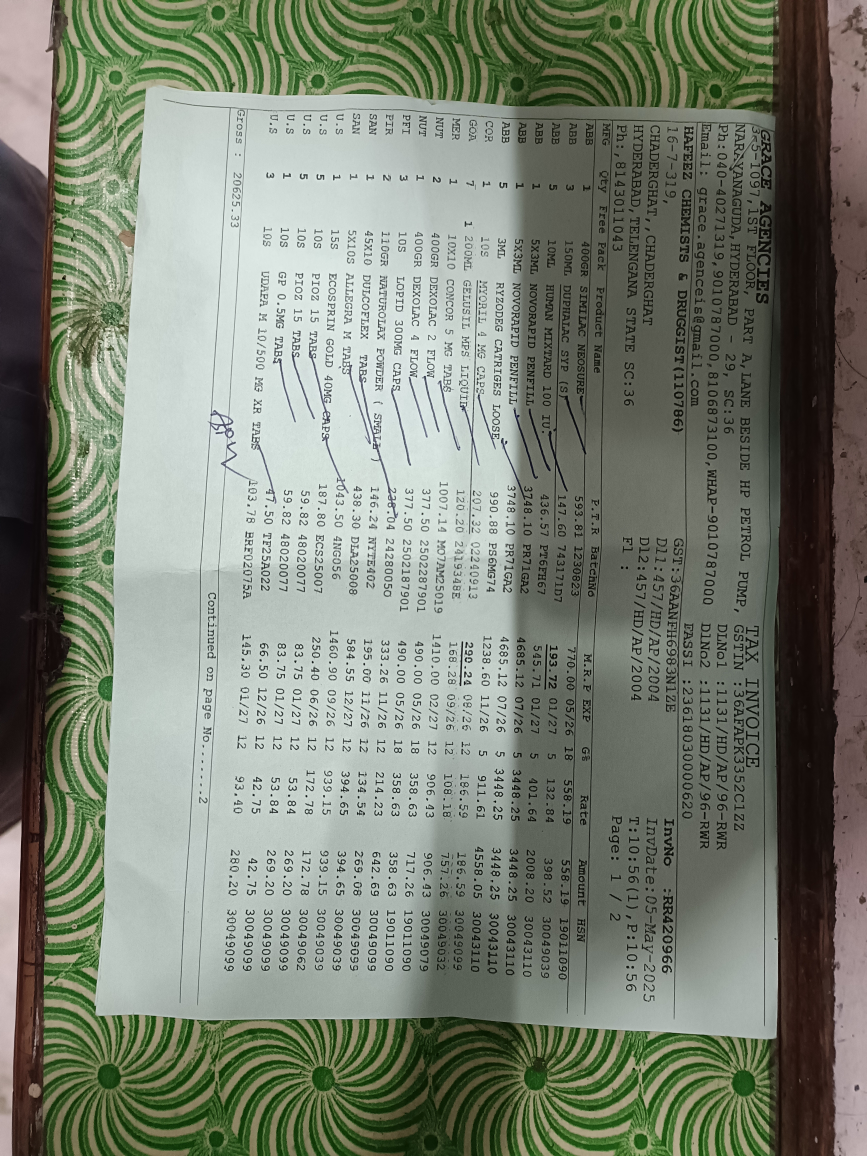 GRACE AGENCIES TAX INVOICE
3-5-1097,1ST FLOOR, PART A,LANE BESIDE HP PETROL PUMP, GSTIN :36AFAPK3352C1ZZ
NARAYANAGUDA,HYDERABAD - 29, SC:36 DLNo1 :1131/HD/AP/96-RWR
Ph:040-40271319,9010787000,8106873100,WHAP-9010787000 DlNo2 :1131/HD/AP/96-RWR
Email: grace.agenceis@gmail.com FASSI :23618030000620
HAFEEZ CHEMISTS & DRUGGIST(110786) GST:36AANFH6983N1ZE InvNo :RR420966
16-7-319, Dl1:457/HD/AP/2004 InvDate:05-May-2025
CHADERGHAT,,CHADERGHAT Dl2:457/HD/AP/2004 T:10:56(1),P:10:56
HYDERABAD,TELENGANA STATE SC:36 Fl : Page: 1 / 2
Ph:,8143011043
MFG Qty Free Pack Product Name P.T.R BatchNo M.R.P EXP G% Rate Amount HSN
ABB 1 400GR SIMILAC NEOSURE 593.81 1230823 770.00 05/26 18 558.19 558.19 19011090
ABB 3 150ML DUPHALAC SYP (S) 147.60 743171D7 193.72 01/27 5 132.84 398.52 30049039
ABB 5 10ML HUMAN MIXTARD 100 IU. 436.57 PT6FH67 545.71 01/27 5 401.64 2008.20 30043110
ABB 1 5X3ML NOVORAPID PENFILL 3748.10 PR71GA2 4685.12 07/26 5 3448.25 3448.25 30043110
ABB 1 5X3ML NOVORAPID PENFILL 3748.10 PR71GA2 4685.12 07/26 5 3448.25 3448.25 30043110
ABB 5 3ML RYZODEG CATRIGES LOOSE 990.88 PS6MG74 1238.60 11/26 5 911.61 4558.05 30043110
COR 1 10S MYORIL 4 MG CAPS 207.32 02240913 290.24 08/26 12 186.59 186.59 30049099
GOA 7 1 200ML GELUSIL MPS LIQUID 120.20 2419348E 168.28 09/26 12 108.18 757.26 30049032
MER 1 10X10 CONCOR 5 MG TABS 1007.14 M07AM25019 1410.00 02/27 12 906.43 906.43 30049079
NUT 2 400GR DEXOLAC 2 FLOW 377.50 2502287901 490.00 05/26 18 358.63 717.26 19011090
NUT 1 400GR DEXOLAC 4 FLOW 377.50 2502187901 490.00 05/26 18 358.63 358.63 19011090
PFI 3 10S LOPID 300MG CAPS 238.04 24280050 333.26 11/26 12 214.23 642.69 30049099
PIR 2 110GR NATUROLAX POWDER ( SMALL ) 146.24 NYTE402 195.00 11/26 12 134.54 269.08 30049099
SAN 1 45X10 DULCOFLEX TABS 438.30 DLA25008 584.55 12/27 12 394.65 394.65 30049039
SAN 1 5X10S ALLEGRA M TABS 1043.50 4NG056 1460.90 09/26 12 939.15 939.15 30049039
U.S 1 15S ECOSPRIN GOLD 40MG CAPS 187.80 ECS25007 250.40 06/26 12 172.78 172.78 30049062
U.S 5 10S PIOZ 15 TABS 59.82 48020077 83.75 01/27 12 53.84 269.20 30049099
U.S 5 10S PIOZ 15 TABS 59.82 48020077 83.75 01/27 12 53.84 269.20 30049099
U.S 1 10S GP 0.5MG TABS 47.50 TF25A022 66.50 12/26 12 42.75 42.75 30049099
U.S 3 10S UDAPA M 10/500 MG XR TABS 103.78 BRF02075A 145.30 01/27 12 93.40 280.20 30049099
Gross : 20625.33 Continued on page No.......2